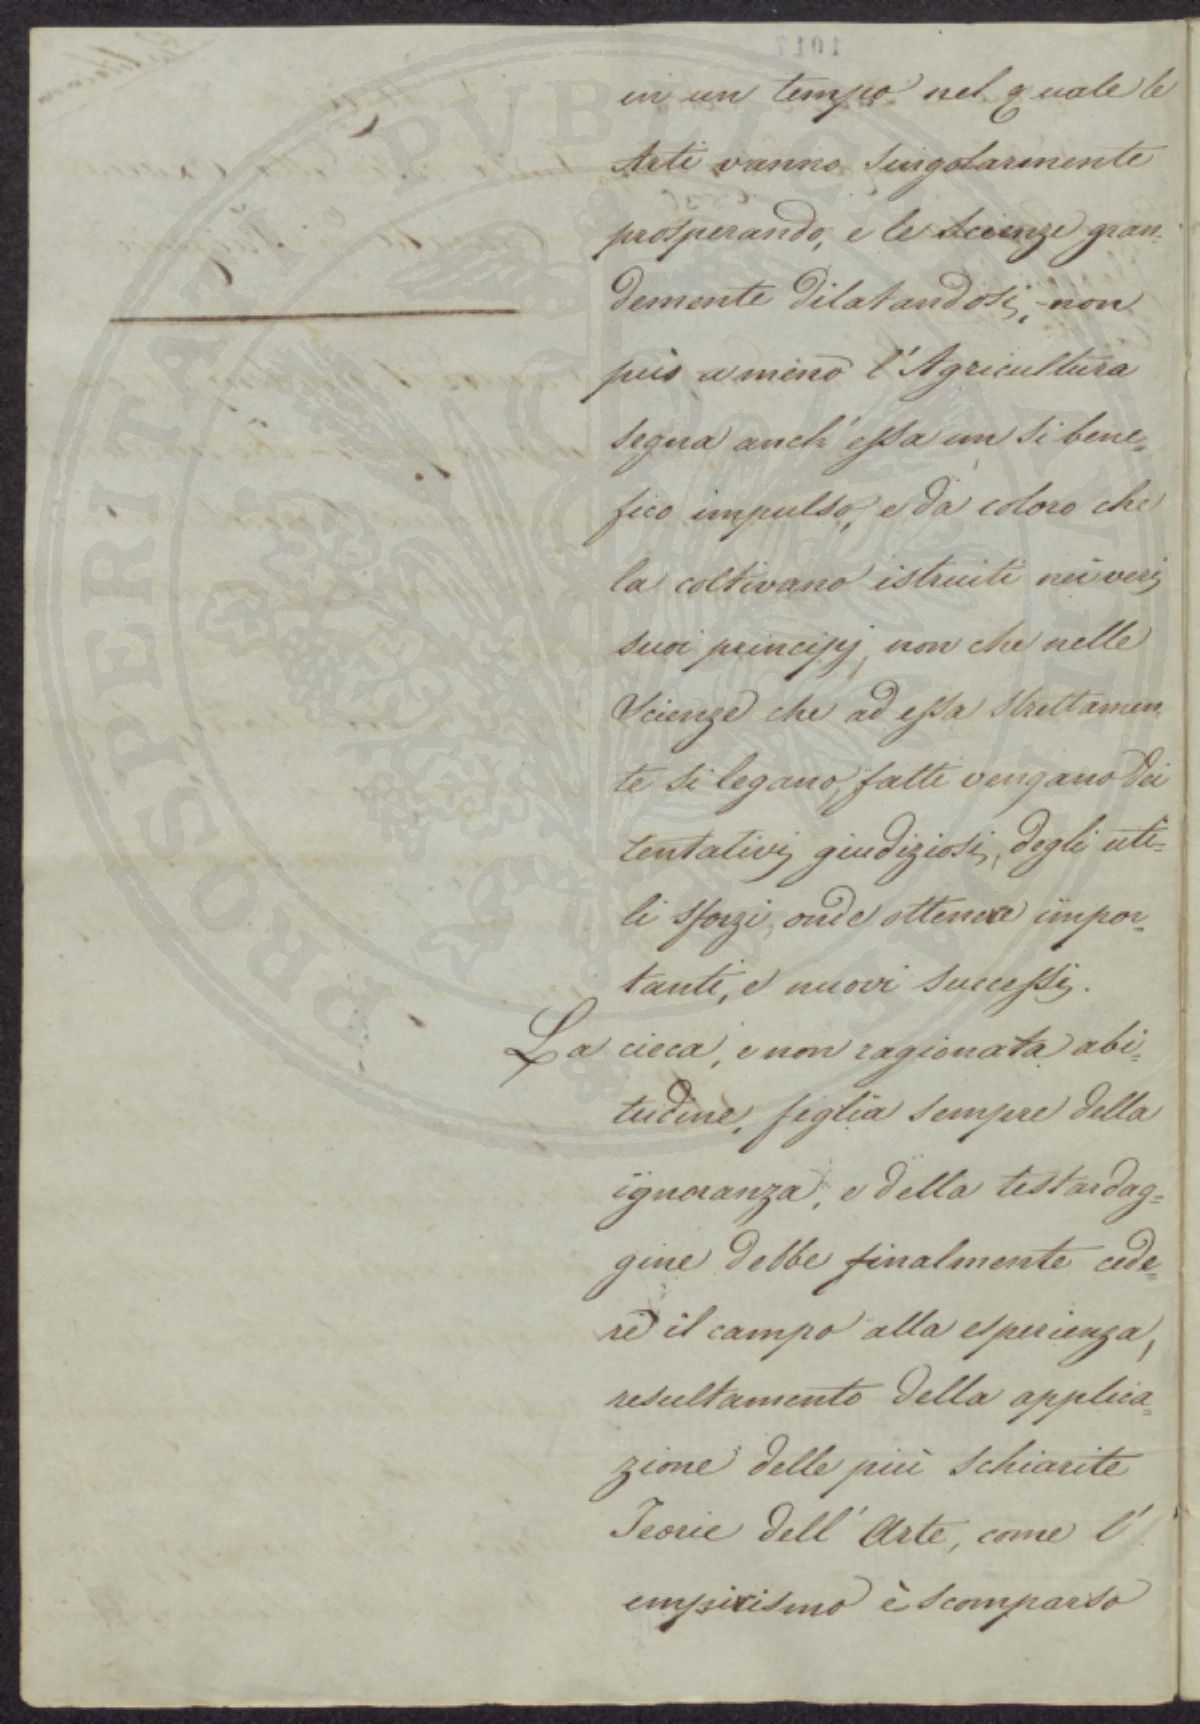 in un tempo nel quale le
Arti vanno singolarmente
prosperando, e le Scienze gran=
demente dilatandosi, non
può a meno l'Agricultura
segua anch'essa un si bene=
fico impulso, e da coloro che
la coltivano istruiti nei veri
suoi principj, non che nelle
Scienze che ad essa strettamen=
te si legano, fatte vengano dei
tentativi giudiziosi, degli uti=
li sforzi, onde ottenere impor=
tanti, e nuovi successi.
La cieca, e non ragionata abi=
tudine, figlia sempre della
ignoranza, e della testardag=
gine debbe finalmente cede=
re il campo alla esperienza,
resultamento della applica=
zione delle più schiarite
Teorie dell'Arte, come l'
empirismo è scomparso
PROSPERITATI PUBLICAE
1017